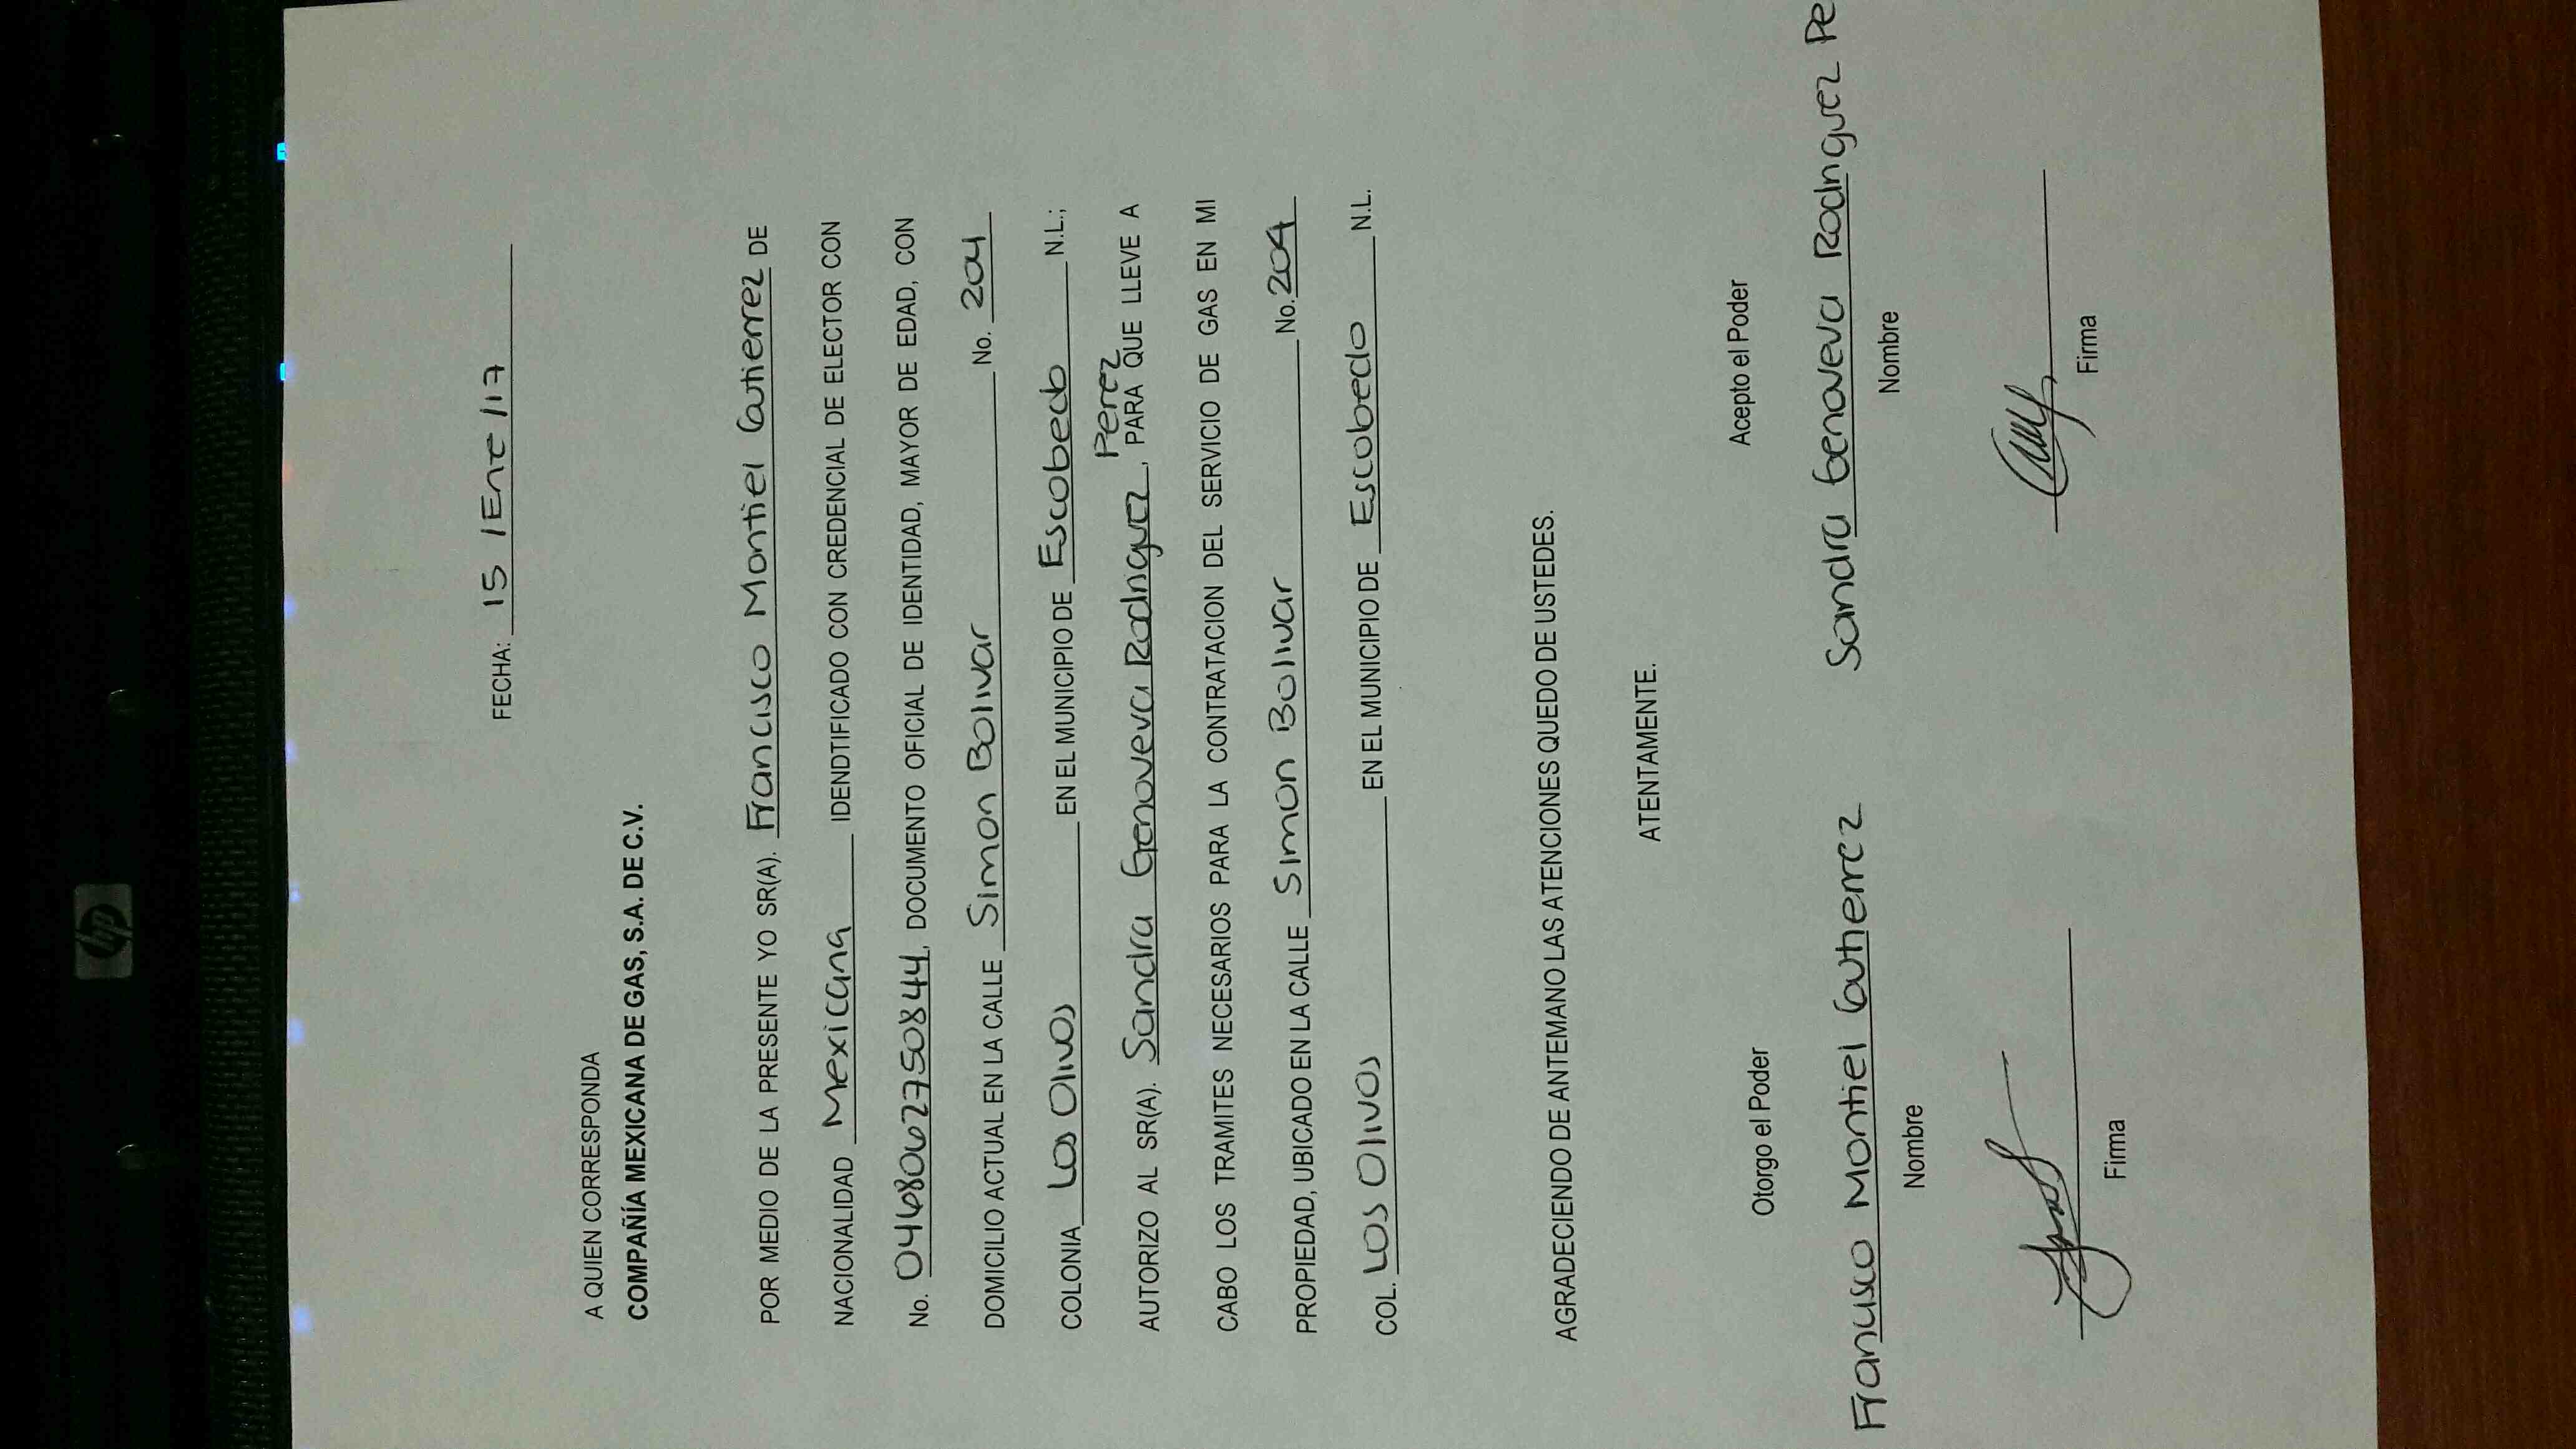 hp
FECHA: 15 / Ene / 17
A QUIEN CORRESPONDA
COMPAÑÍA MEXICANA DE GAS, S.A. DE C.V.
POR MEDIO DE LA PRESENTE YO SR(A). Francisco Montiel Gutierrez DE
NACIONALIDAD Mexicana IDENDTIFICADO CON CREDENCIAL DE ELECTOR CON
No. 0468062750844, DOCUMENTO OFICIAL DE IDENTIDAD, MAYOR DE EDAD, CON
DOMICILIO ACTUAL EN LA CALLE Simon Bolivar No. 204
COLONIA Los Olivos EN EL MUNICIPIO DE Escobedo N.L.;
AUTORIZO AL SR(A). Sandra Genoveva Rodriguez Perez, PARA QUE LLEVE A
CABO LOS TRAMITES NECESARIOS PARA LA CONTRATACION DEL SERVICIO DE GAS EN MI
PROPIEDAD, UBICADO EN LA CALLE Simon Bolivar No. 204
COL. Los Olivos EN EL MUNICIPIO DE Escobedo N.L.
AGRADECIENDO DE ANTEMANO LAS ATENCIONES QUEDO DE USTEDES.
ATENTAMENTE.
Otorgo el Poder Acepto el Poder
Francisco Montiel Gutierrez Sandra Genoveva Rodriguez Pe
Nombre Nombre
Firma Firma